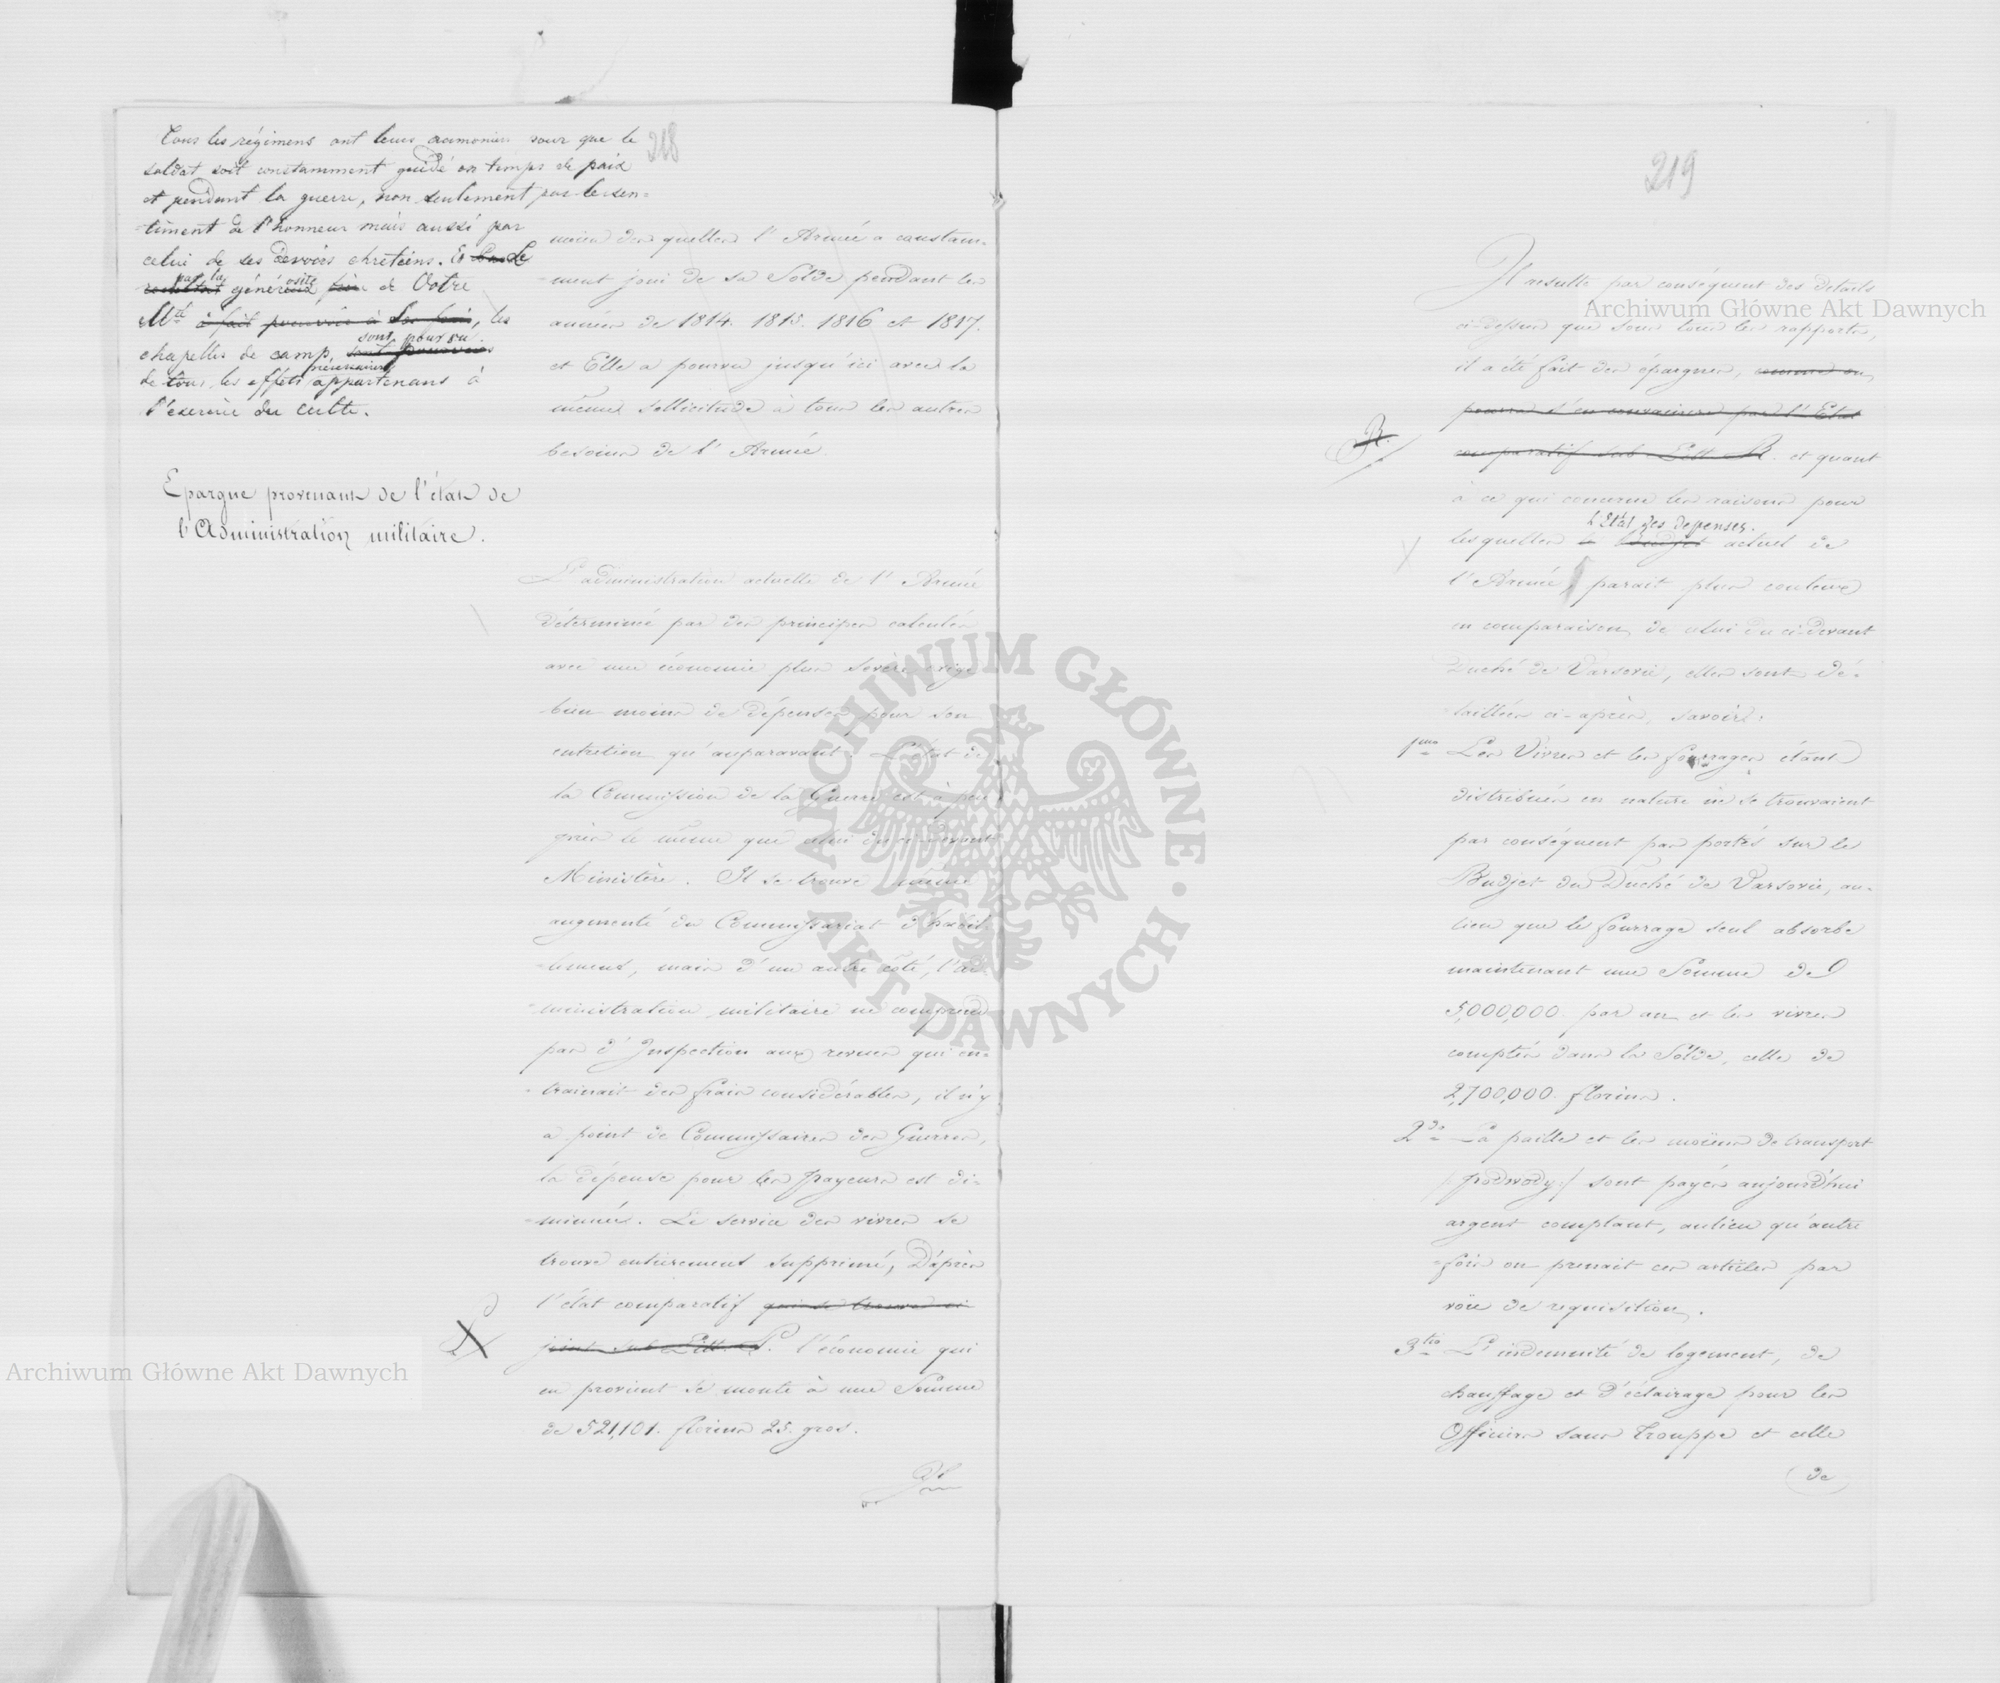 218
Tous les régimens ont leurs aumoniers pour que le
soldat soit constamment guidé en temps de paix
et pendant la guerre, non seulement par le sen=
=timent de l'honneur mais aussi par
celui de ses devoirs chretiens. Et
par la générosité de Votre
M.té à fait pourvoir à Ses frais, les
sont pourvu
chapelles de camp, sont pourvues
nécessaires
de tous les effets appartenans à
l'exercice du culte.
moien des quelles l'Armée a constam=
=ment joui de sa Solde pendant les
années de 1814. 1815. 1816 et 1817.
et Elle a pourvu jusqu'ici avec la
même sollicitude à tous les autres
besoins de l'Armée.
Epargne provenant de l'état de
l'Administration militaire.
L'administration actuelle de l'Armée
déterminée par des principes calculés
avec une économie plus sevère exige
bien moins de dépenses pour son
entretien qu'auparavant. L'état de
la Commission de la Guerre est à peu
près le même que celui du ci-devant
Ministère. Il se trouve même
augmenté du Commissariat d'habil=
=lement, mais d'un autre côté, l'ad=
=ministration militaire ne comprend
pas d'Inspection aux revues qui en=
=trainait des frais considérables, il n'y
a point de Commissaires des Guerres,
la dépense pour les payeurs est di=
=minuée. Le service des vivres se
trouve entierement supprimé, D'après
l'état comparatif qui se trouve ci
joint sub Litt. P. l'économie qui
en provient se monte à une Somme
de 521,101. florins 25. gros.
219
Il resulte par conséquent des details
ci-dessus que sous tous les rapports,
il a été fait des épargnes, comme on
pourra s'en convaincre par l'Etat
R.
comparatif sub Litt. R. et quant
à ce qui concerne les raisons pour
l'Etat des depenses.
lesquelles le Budjet actuel de
l'Armée, parait plus couteux
en comparaison de celui du ci-devant
Duché de Varsovie, elles sont dé=
=taillées ci-après, savoir:
1mo Les Vivres et les fourrages étant
distribués en nature ne se trouvaient
par conséquent pas portés sur le
Budjet du Duché de Varsovie, au=
lieu que le fourrage seul absorbe
maintenant une Somme de
5,000,000 par an et les vivres
comptés dans la Solde, celle de
2,700,000. florins.
2do La paille et les moïens de transport
/:podwody:/ sont payés aujourd'hui
argent comptant, aulieu qu'autre
=fois on prenait ces articles par
voïe de requisition.
3tio L'indemnité de logement, de
chauffage et d'éclairage pour les
Officiers sans Trouppe et celle
de
Archiwum Główne Akt Dawnych
Archiwum Główne Akt Dawnych
ARCHIWUM GŁÓWNE · AKT DAWNYCH ·